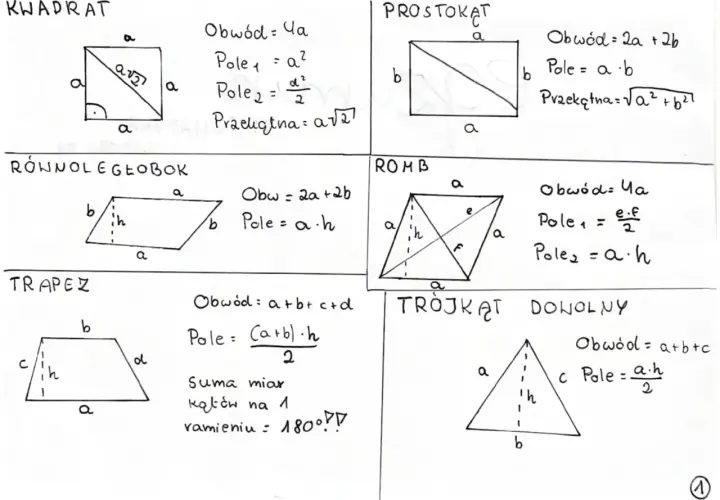 KWADRAT
a
a
a√2
a
a
Obwód = 4a
Pole₁ = a²
Pole₂ = d²/2
Przekątna = a√2
PROSTOKĄT
a
b
b
a
Obwód = 2a + 2b
Pole = a · b
Przekątna = √a² + b²
RÓWNOLEGŁOBOK
a
b
h
b
a
Obw = 2a + 2b
Pole = a · h
ROMB
a
e
a
h
a
f
a
Obwód = 4a
Pole₁ = e·f/2
Pole₂ = a · h
TRAPEZ
b
c
h
d
a
Obwód = a + b + c + d
Pole = (a+b) · h/2
Suma miar
kątów na 1
ramieniu = 180°!!
TRÓJKĄT DOWOLNY
a
h
c
b
Obwód = a+b+c
Pole = a·h/2
1